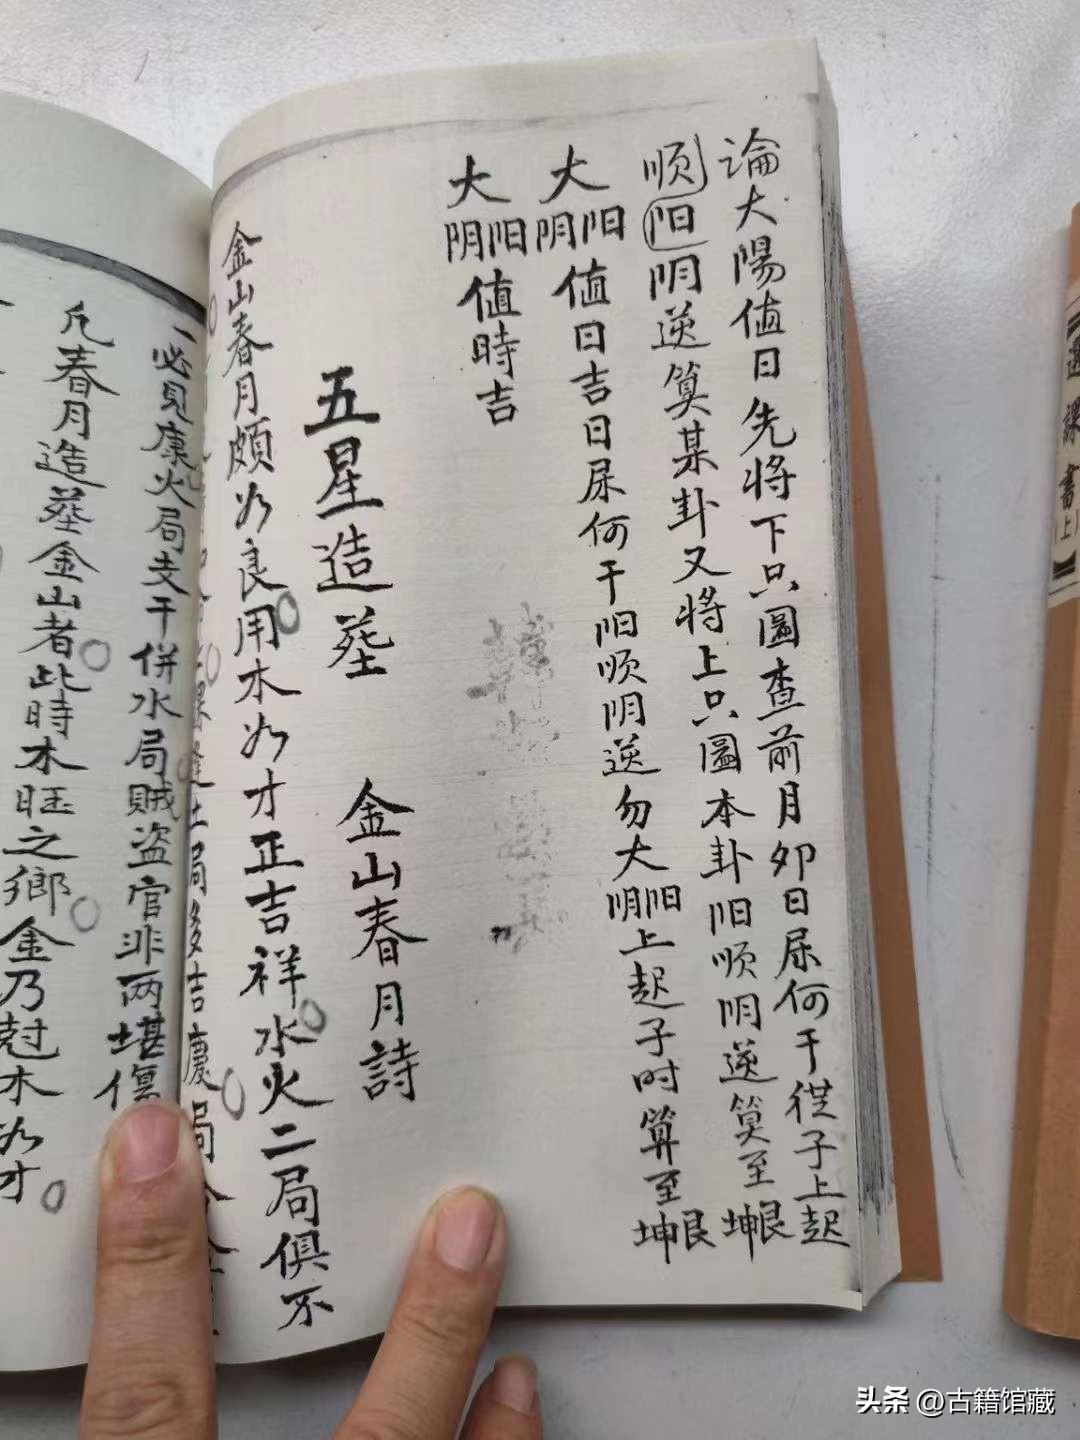 論大陽值日先將下只圖查前月卯日屎何干從子上起
顺阳阴逆算某卦又將上只圖本卦阳顺阴逆算至坤艮
大阴阳值日吉日屎何干阳顺阴逆勿大阴阳上起子时算至坤艮
大阴阳值時吉
五星造塟 金山春月詩
金山春月頗为良用木为才正吉祥水火二局俱不
土局多吉慶局
一必見康火局支干併水局賊盗官非两堪傷
凢春月造塟金山者此時木旺之鄉金乃尅木为才
選課書(上)
头条 @古籍馆藏